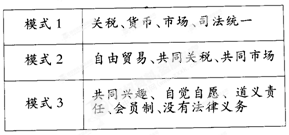 模式1 关税、货币、市场、司法统一
模式2 自由贸易、共同关税、共同市场
模式3 共同兴趣、自觉自愿、道义责
任、会员制、没有法律义务